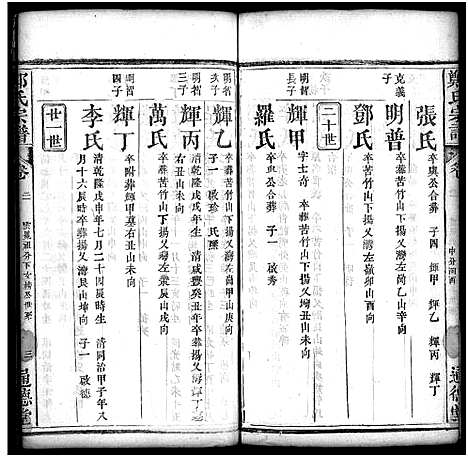 鄭氏宗譜
卷
二
中分河西
通德堂
張氏 卒與公合葬 子四 輝甲 輝乙 輝丙 輝丁
克義
次子
明普 卒葬苦竹山下揚又灣左荷乙山辛向
鄧氏 卒葬苦竹山下揚又灣左嶺卯山酉向
二十世
明普
長子
輝甲 字士奇 卒葬苦竹山下揚又灣坳丑山未向
羅氏 卒與公合葬 子一 啟秀
明智
次子
輝乙 卒葬苦竹山下揚又灣左嶺甲山庚向
子一 啟珍 氏
明智
三子
輝丙 清乾隆戊戌年生 清咸豐癸丑年卒葬揚又灣坳
右丑山未向
萬氏 卒葬苦竹山下揚又灣左嶺辰山戌向
明智
四子
輝丁 卒附葬輝甲墓右丑山未向
李氏 清乾隆戊申年七月二十四辰時生 清同治甲子年八
月十六辰時卒葬揚又灣艮山坤向 子一 啟德
廿一世
鄭氏宗譜
卷
二
三
通德堂